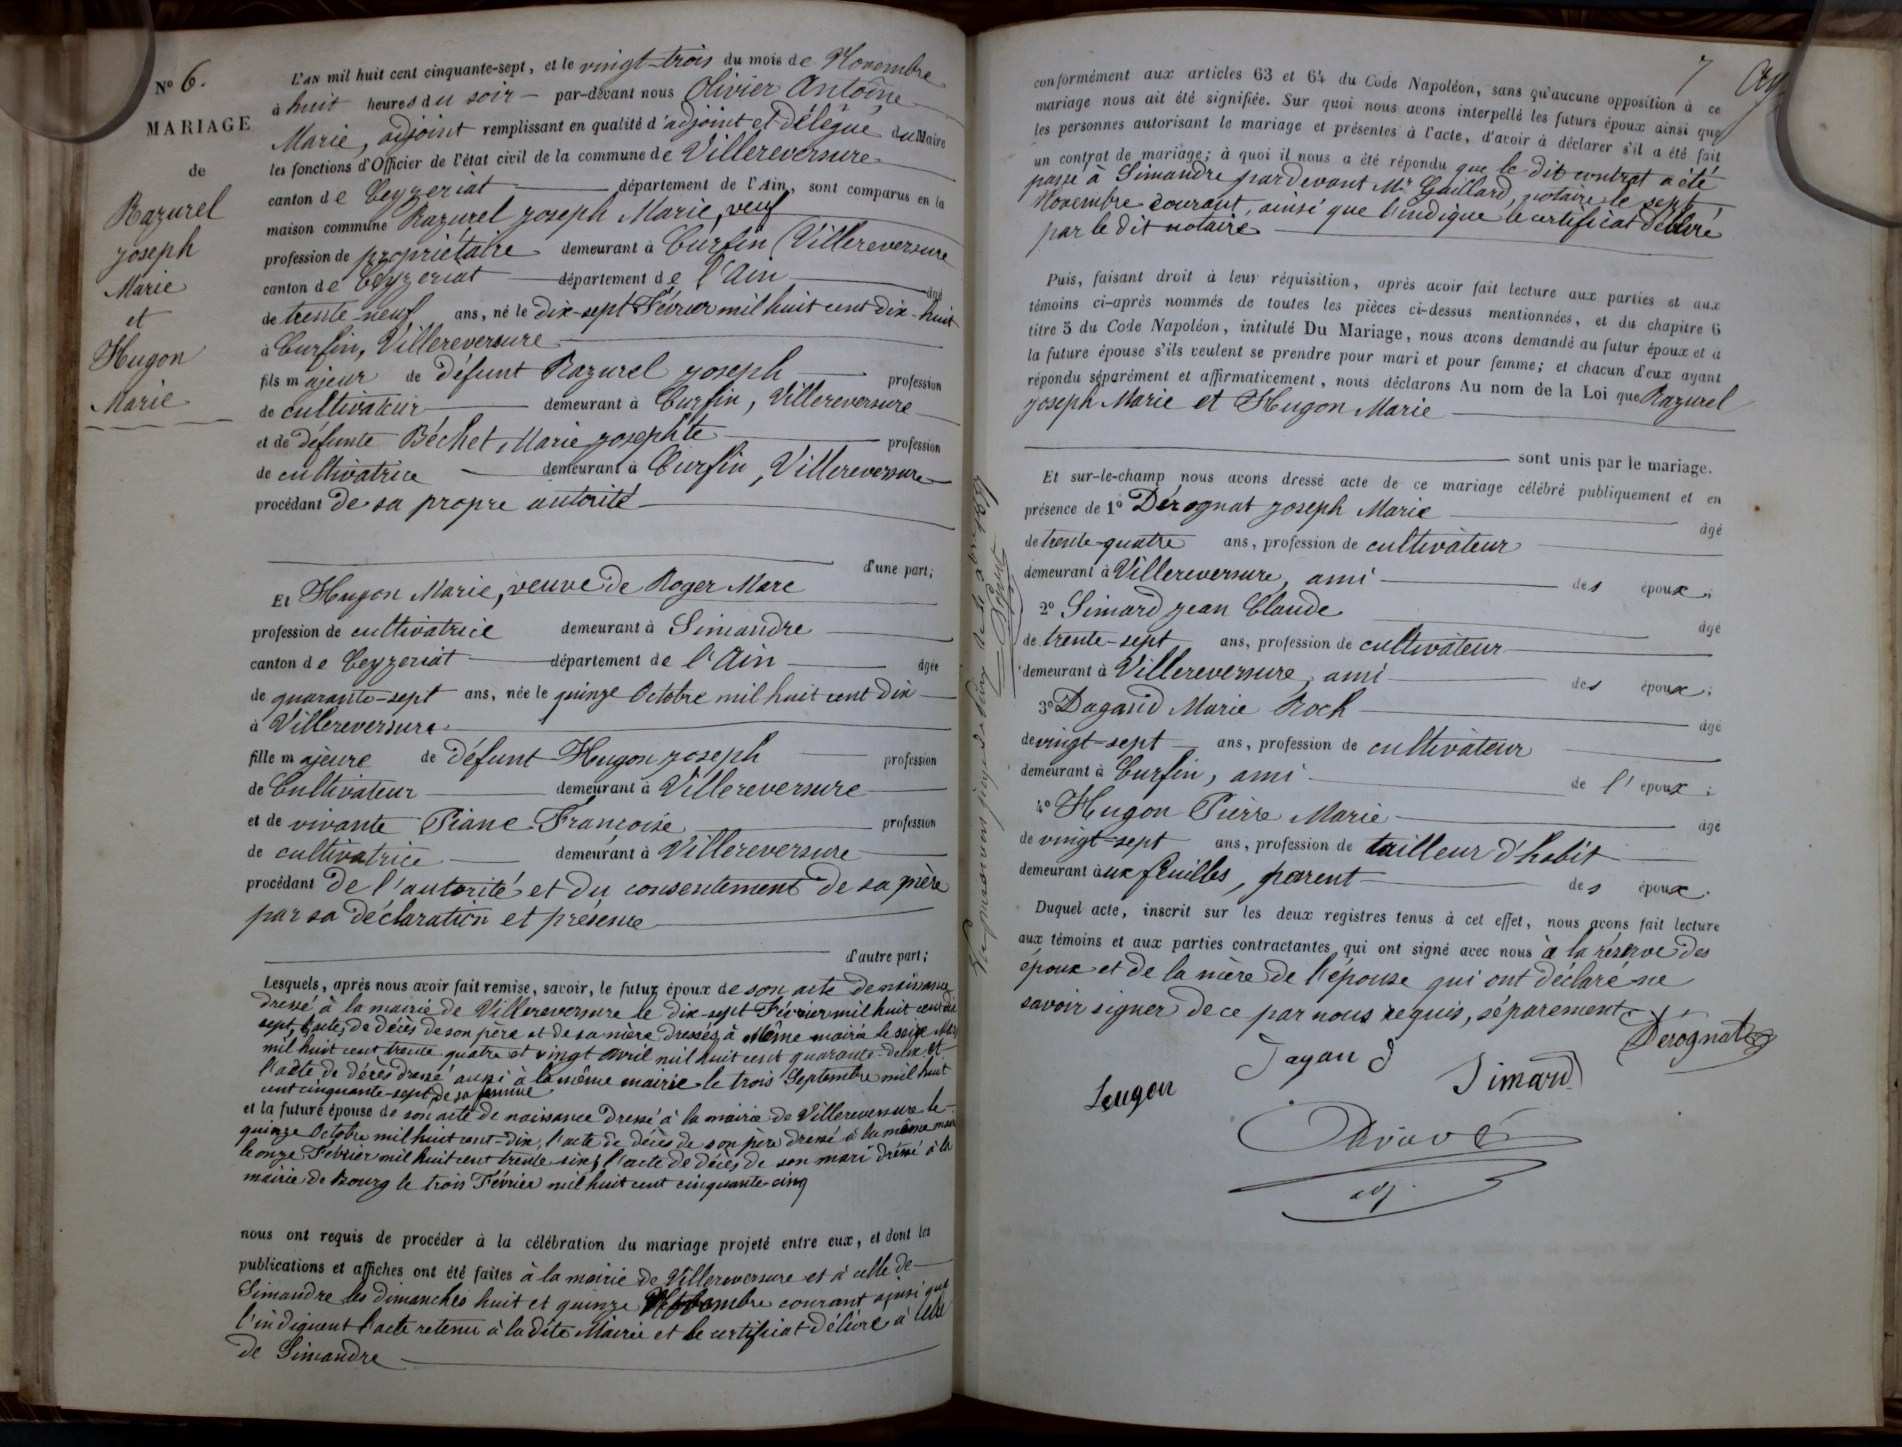 N° 6.
MARIAGE
de
Razurel
Joseph
Marie
et
Hugon
Marie
L'AN mil huit cent cinquante-sept, et le vingt-trois du mois de Novembre
à huit heures du soir par-devant nous Olivier Antoine
Marie, adjoint remplissant en qualité d'adjoint et délégué du Maire
les fonctions d'Officier de l'état civil de la commune de Villereversure
canton de Ceyzeriat département de l'Ain, sont comparus en la
maison commune Razurel Joseph Marie, veuf
profession de propriétaire demeurant à Curfin (Villereversure
canton de Ceyzeriat département de l'Ain âgé
de trente-neuf ans, né le dix-sept Février mil huit cent dix-huit
à Curfin, Villereversure
fils majeur de défunt Razurel Joseph profession
de cultivateur demeurant à Curfin, Villereversure
et de défunte Béchet Marie Josephte profession
de cultivatrice demeurant à Curfin, Villereversure
procédant de sa propre autorité
d'une part;
Et Hugon Marie, veuve de Roger Marc
profession de cultivatrice demeurant à Simandre
canton de Ceyzeriat département de l'Ain âgée
de quarante-sept ans, née le quinze Octobre mil huit cent dix
à Villereversure
fille majeure de défunt Hugon Joseph profession
de Cultivateur demeurant à Villereversure
et de vivante Piane Françoise profession
de cultivatrice demeurant à Villereversure
procédant de l'autorité et du consentement de sa mère
par sa déclaration et présence
d'autre part;
Lesquels, après nous avoir fait remise, savoir, le futur époux de son acte de naissance
dressé à la mairie de Villereversure le dix-sept Février mil huit cent dix
sept, l'acte de décès de son père et de sa mère dressés à même mairie le seize
mil huit cent trente quatre et vingt avril mil huit cent quarante-deux et
l'acte de décès dressé aussi à la même mairie le trois Septembre mil huit
cent cinquante-sept de sa femme
et la future épouse de son acte de naissance dressé à la mairie de Villereversure le
quinze Octobre mil huit cent-dix, l'acte de décès de son père dressé à la même mairie
le onze Février mil huit cent trente six, l'acte de décès de son mari dressé à la
mairie de Bourg le trois Février mil huit cent cinquante-cinq
nous ont requis de procéder à la célébration du mariage projeté entre eux, et dont les
publications et affiches ont été faites à la mairie de Villereversure et à celle de
Simandre les dimanches huit et quinze Novembre courant ainsi que
l'indiquent l'acte retenu à la dite Mairie et le certificat délivré à celle
de Simandre
7
conformément aux articles 63 et 64 du Code Napoléon, sans qu'aucune opposition à ce
mariage nous ait été signifiée. Sur quoi nous avons interpellé les futurs époux ainsi que
les personnes autorisant le mariage et présentes à l'acte, d'avoir à déclarer s'il a été fait
un contrat de mariage; à quoi il nous a été répondu que le dit contrat a été
passé à Simandre pardevant Mr Gaillard, notaire le sept
Novembre courant, ainsi que l'indique le certificat délivré
par le dit notaire
Puis, faisant droit à leur réquisition, après avoir fait lecture aux parties et aux
témoins ci-après nommés de toutes les pièces ci-dessus mentionnées, et du chapitre 6
titre 5 du Code Napoléon, intitulé Du Mariage, nous avons demandé au futur époux et à
la future épouse s'ils veulent se prendre pour mari et pour femme; et chacun d'eux ayant
répondu séparément et affirmativement, nous déclarons Au nom de la Loi que Razurel
Joseph Marie et Hugon Marie
sont unis par le mariage.
Et sur-le-champ nous avons dressé acte de ce mariage célébré publiquement et en
présence de 1° Dérognat Joseph Marie âgé
de trente-quatre ans, profession de cultivateur
demeurant à Villereversure, ami des époux;
2° Simard Jean Claude âgé
de trente-sept ans, profession de cultivateur
demeurant à Villereversure, ami des époux;
3° Dagand Marie Roch âgé
de vingt-sept ans, profession de cultivateur
demeurant à Curfin, ami de l'époux;
4° Hugon Pierre Marie âgé
de vingt-sept ans, profession de tailleur d'habit
demeurant aux feuilles, parent des époux.
Duquel acte, inscrit sur les deux registres tenus à cet effet, nous avons fait lecture
aux témoins et aux parties contractantes qui ont signé avec nous à la réserve des
époux et de la mère de l'épouse qui ont déclaré ne
savoir signer de ce par nous requis, séparement
Dérognat
Simard